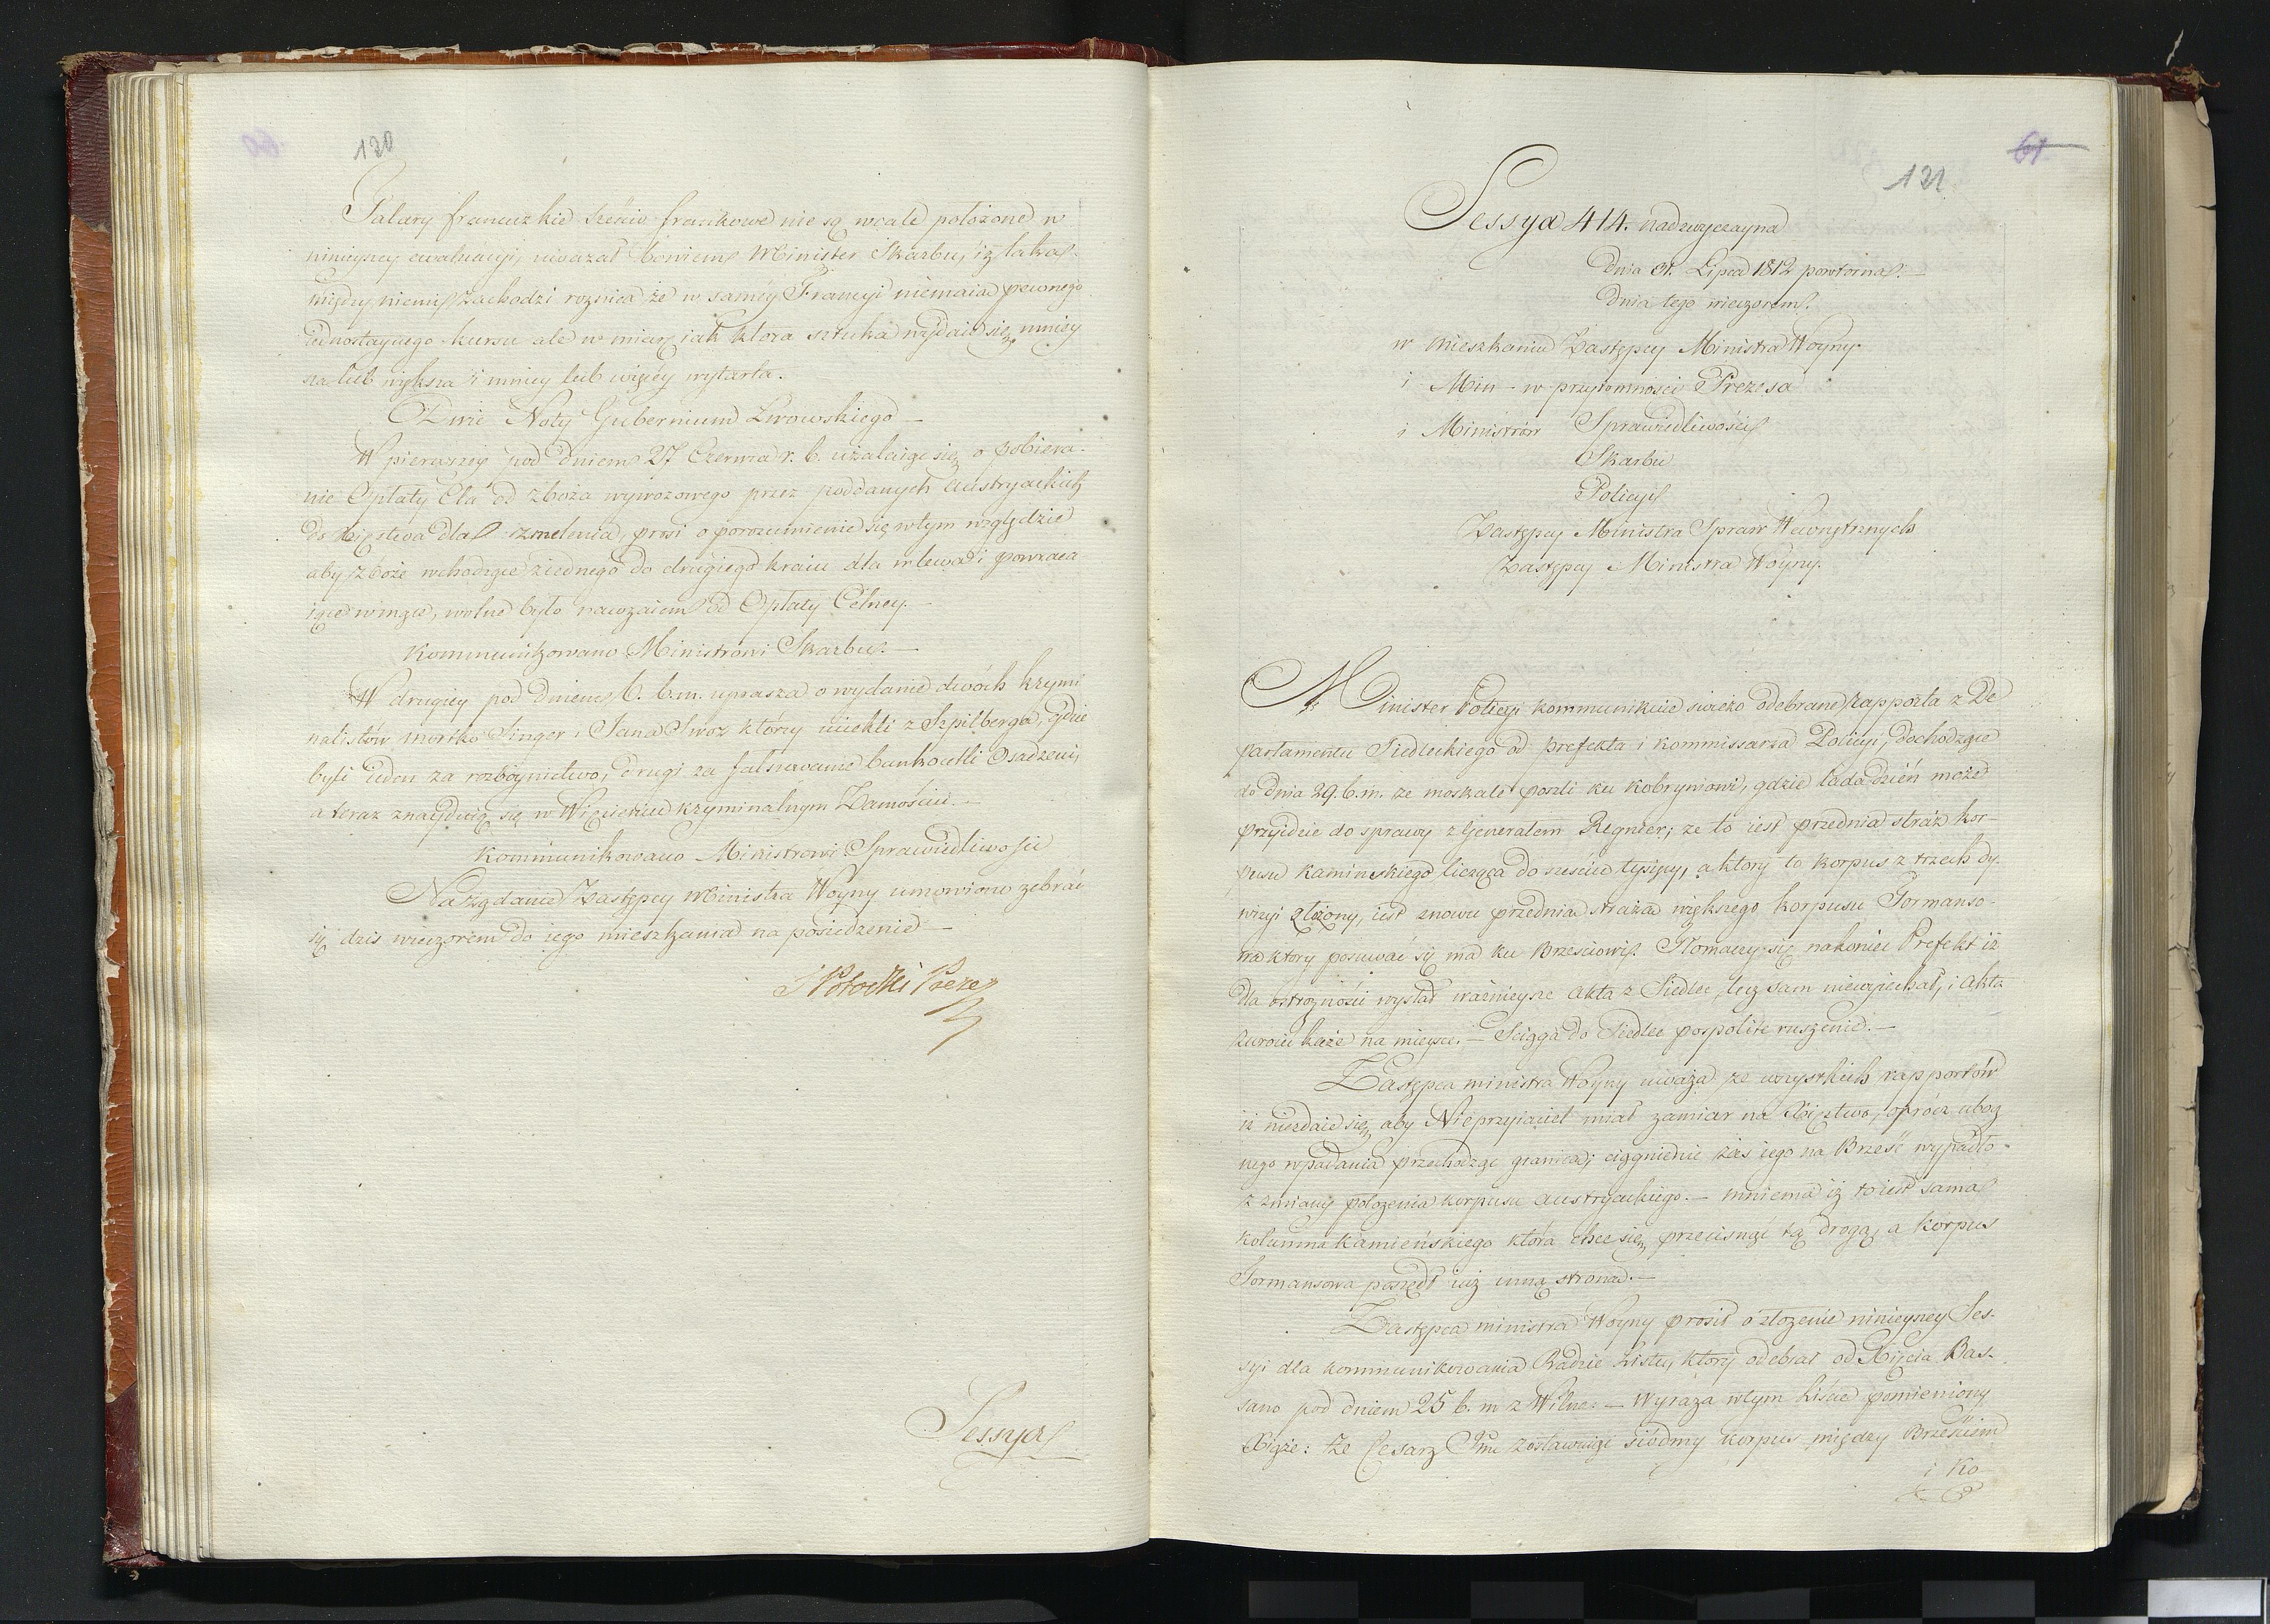 120
Talary francuzkie sześcio frankowe nie są wcale położone w
ninieyszey ewaluacyi, uważał bowiem Minister Skarbu, iż taka
między niemi zachodzi roznica że w saméy Francyi niemaia pewnego
iednostaynego kursu ale w miarę iak ktora sztuka wydaie się mniey
sza lub większa i mniey lub więcéy wytarta.
Dwie Noty Gubernium Lwowskiego —
W pierwszéy pod dniem 27 Czerwca r. b. użalaiąc się o pobiera-
nie Opłaty Cła od zboża wywozowego przez poddanych Austryackich
do Xięstwa dla zmelenia, prosi o porozumienie się w tym względzie
aby zboże wchodzące z iednego do drugiego kraiu dla mlewa i powraca
iące w mące, wolne było nawzaiem od Opłaty Celney. —
Kommunikowano Ministrowi Skarbu. —
W drugiey pod dniem 6. b. m. uprasza o wydanie dwóch krymi
nalistów Mortko Singer i Jana Swoz którzy uciekli z Szpilberga, gdzie
byli ieden za rozbóynictwo, drugi za fałszowanie bankocetli Osadzeni,
a teraz znayduią się w Więzieniu kryminalnym Zamościu. —
Kommunikowano Ministrowi Sprawiedliwości
Na żądanie Zastępcy Ministra Woyny umowiono zebrać
się dzis wieczorem do iego mieszkania na posiedzenie —
S Potocki Prezes
Sessya
61
121
Sessya 414. nadzwyczayna
Dnia 31. Lipca 1812 powtorna. —
Dnia tego wieczorem.
w Mieszkaniu Zastępcy Ministra Woyny.
i Min - w przytomności Prezesa
i Ministrów Sprawiedliwości
Skarbu
Policyi
Zastępcy Ministra Spraw Wewnętrznych
Zastępcy Ministra Woyny.
Minister Policyi kommunikuie swieżo odebrane rapporta z De
partamentu Siedleckiego od prefekta i kommissarza Policyi, dochodzące
do dnia 29. b. m. ze moskale poszli ku Kobryniowi, gdzie lada dzień może
przyidzie do sprawy z Generałem Regnier; ze to iest przednia straż kor-
pusu Kaminskiego licząca do sześciu tysięcy, a ktory to korpus z trzech dy-
wizyi złożony, iest znowu przednia straża większego korpusu Tormanso-
wa ktory posuwać się ma ku Brzesciowi. Tłomaczy się nakoniec Prefekt iż
dla ostrożności wysłał ważnieysze Akta z Siedlec, lecz sam niewyiechał, i Akta
zwrocić każe na mieysce. — Sciąga do Siedlec pospolite ruszenie. —
Zastępca ministra Woyny uważa ze wszystkich rapportów
iż niezdaie się, aby Nieprzyiaciel miał zamiar na Xięstwo, oprócz ubocz
nego wpadania przechodząc granica; ciągnienie zas iego na Brześć wypadło
z zmiany położenia korpusu austryackiego. — mniema iż to iest sama
kolumna Kamieńskiego która chce się przecisnąć tą drogą, a korpus
Tormansowa poszedł iuż inną stroną. —
Zastępca ministra Woyny prosił o złożenie ninieyszey Ses-
syi dla kommunikowania Radzie Listu, który odebrał od Xięcia Bas-
sano pod dniem 25 b. m z Wilna: — Wyraża w tym Liście pomieniony
Xiąże: że Cesarz Jmć zostawuiąc siódmy korpus między Brześciem
i Ko